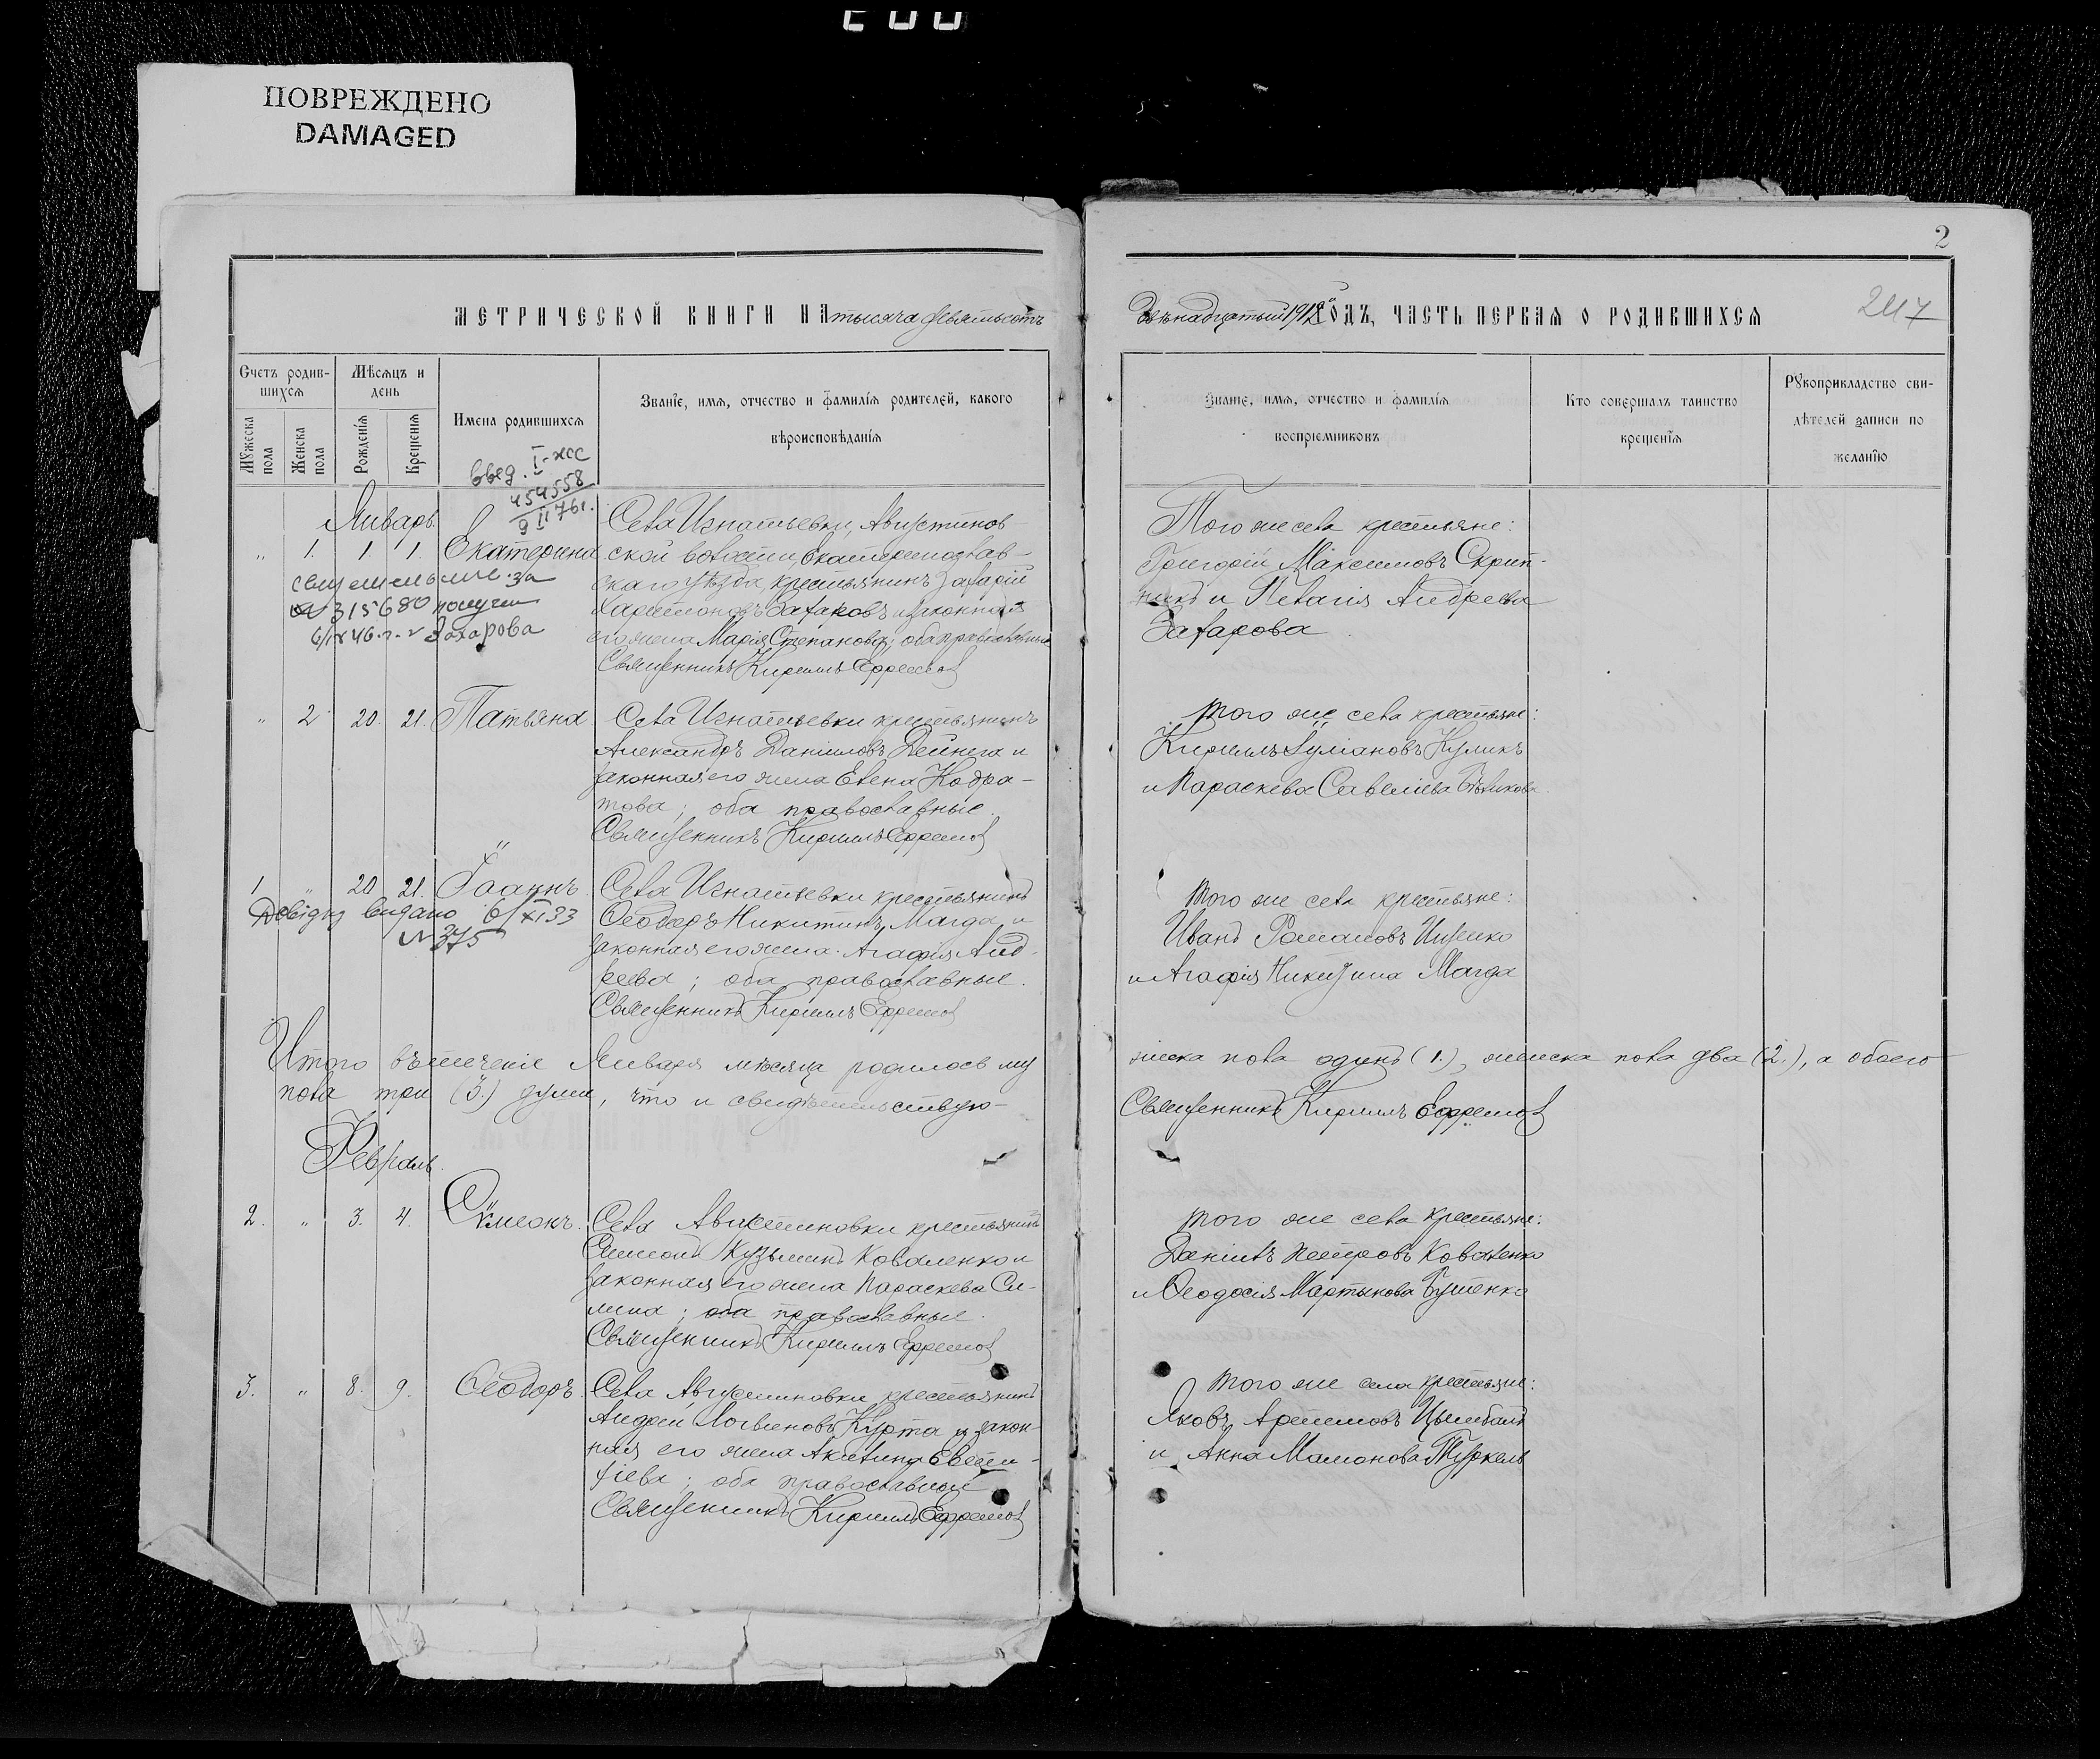 ПОВРЕЖДЕНО
DAMAGED
2
МЕТРИЧЕСКОЙ КНИГИ НА тысяча девятьсотъ
двѣнадцатый 1912 ГОДЪ, ЧАСТЬ ПЕРВАЯ О РОДИВШИХСЯ
247
Счетъ родив-
шихся
Мужеска
пола
Женска
пола
Мѣсяцъ и
день
Рожденія
Крещенія
Имена родившихся
Званіе, имя, отчество и фамилія родителей, какого
вѣроисповѣданія
Званіе, имя, отчество и фамилія
воспріемниковъ
Кто совершалъ таинство
крещенія
Рукоприкладство сви-
дѣтелей записи по
желанію
454558
Январь
" 1. 1 1. Екатерина
Села Игнатьевки, Августинов
ской волости, Екатеринослав-
скаго уѣзда, крестьянинъ Захарій
Харитоновъ Захаровъ и законная
его жена Марія Степанова; оба православные
Священникъ Кириллъ Ефремов
315680
Захарова
Того же села крестьяне:
Григорій Максимовъ Скрип-
никъ и Пелагія Андреева
Захарова
" 2 20. 21. Татьяна
Села Игнатьевки крестьянинъ
Александръ Даниловъ Дейнега и
законная его жена Елена Кодра-
това; оба православные.
Священникъ Кириллъ Ефремов
Того же села крестьяне:
Кириллъ Іуліановъ Куликъ
и Параскева Савеліева Бѣликова
1 " 20 21. Іоаннъ
Довідку видано 6/XI 33
N 375
Села Игнатьевки крестьянинъ
Ѳеодоръ Никитинъ Магда и
законная его жена Агафія Анд-
реева; оба православные.
Священникъ Кириллъ Ефремов
Того же села крестьяне:
Иванъ Романовъ Ищенко
и Агафія Никитина Магда
Итого въ теченіе Января мѣсяца родилось му
жеска пола одинъ (1.), женска пола два (2.), а обоего
пола три (3.) души, что и свидѣтельствую-
Священникъ Кириллъ Ефремов
Февраль.
2. " 3. 4. Сѵмеонъ.
Села Августиновки крестьянинъ
Симеонъ Кузьминъ Коваленко и
законная его жена Параскева Си-
лина; оба православные.
Священникъ Кириллъ Ефремов
Того же села крестьяне:
Даніилъ Петровъ Коваленко
и Ѳеодосія Мартынова Бутенко
3. " 8. 9. Ѳеодоръ.
Села Августиновки крестьянинъ
Андрей Логвиновъ Курта и закон-
ная его жена Акилина Евти-
хіева; оба православные
Священникъ Кириллъ Ефремов
Того же села крестьяне:
Яковъ Артемовъ Цымбалъ
и Анна Мамонова Туркель